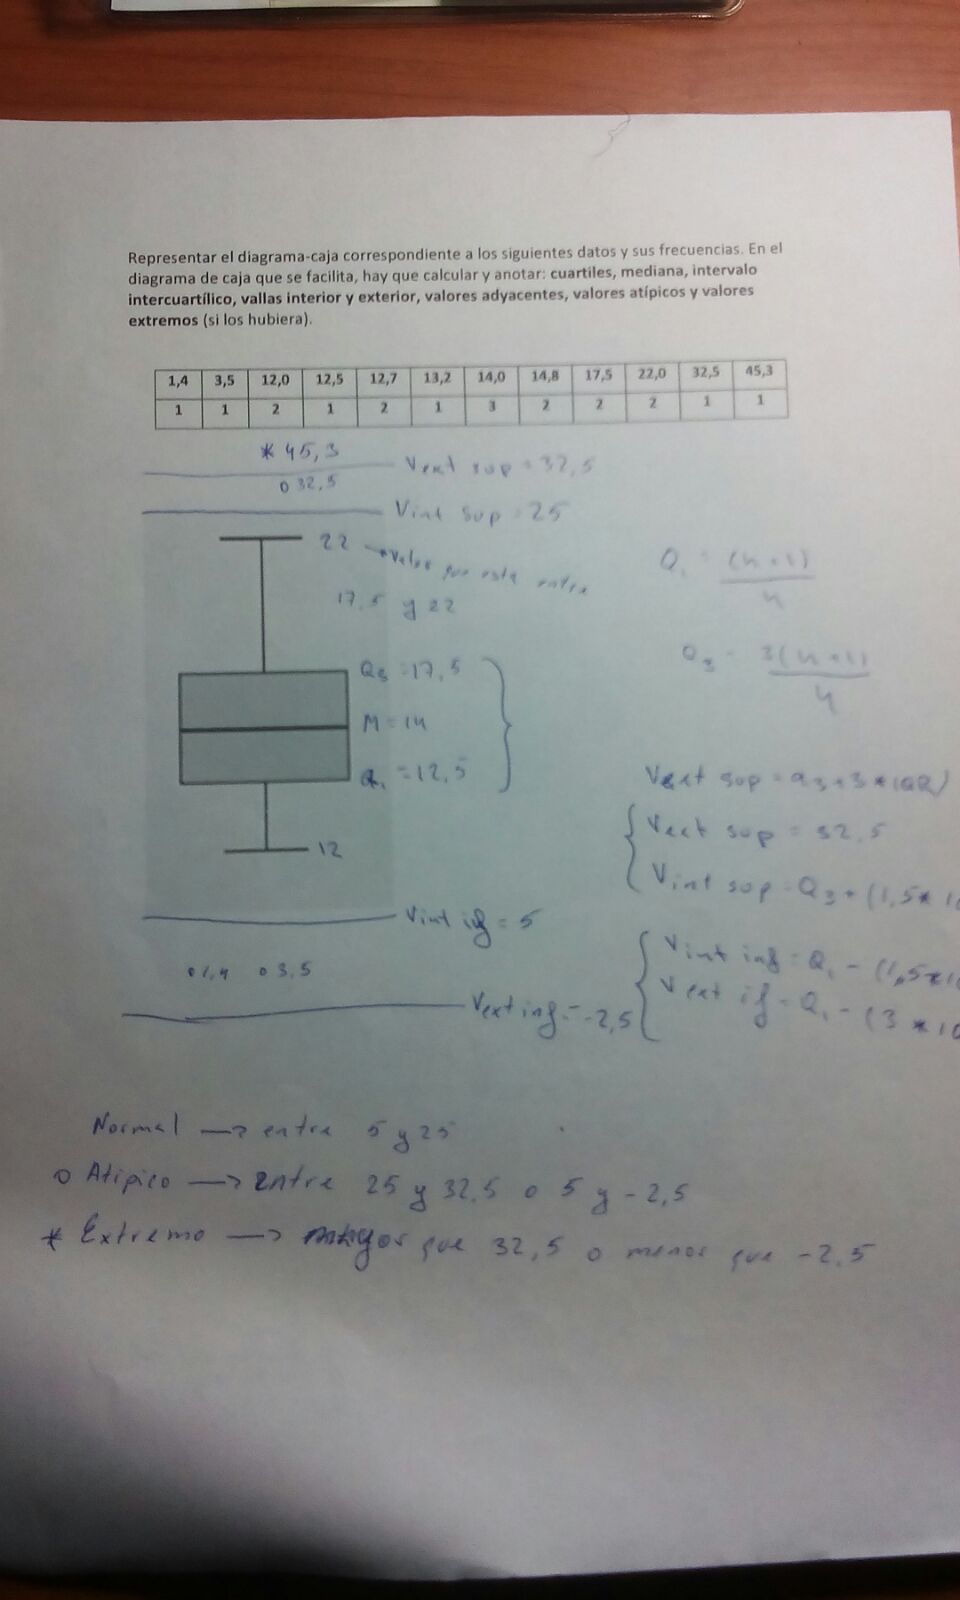 Representar el diagrama-caja correspondiente a los siguientes datos y sus frecuencias. En el
diagrama de caja que se facilita, hay que calcular y anotar: cuartiles, mediana, intervalo
intercuartílico, vallas interior y exterior, valores adyacentes, valores atípicos y valores
extremos (si los hubiera).
1,4 3,5 12,0 12,5 12,7 13,2 14,0 14,8 17,5 22,0 32,5 45,3
1 1 2 1 2 1 3 2 2 2 1 1
* 45,3
Vext sup = 32,5
o 32,5
Vint sup = 25
22 → valor que esta entre
17,5 y 22
Q1 = (n+1)
4
Q3 = 17,5
Q3 = 3(n+1)
4
M = 14
Q1 = 12,5
Vext sup = Q3 + 3 * IQR)
Vext sup = 32,5
12
Vint sup = Q3 + (1,5 *
Vint if = 5
Vint inf = Q1 - (1,5 *
o 1,4 o 3,5
Vext if = Q1 - (3 *
Vext inf = -2,5
Normal → entre 5 y 25
o Atipico → Entre 25 y 32,5 o 5 y -2,5
* Extremo → mayor que 32,5 o menos que -2,5